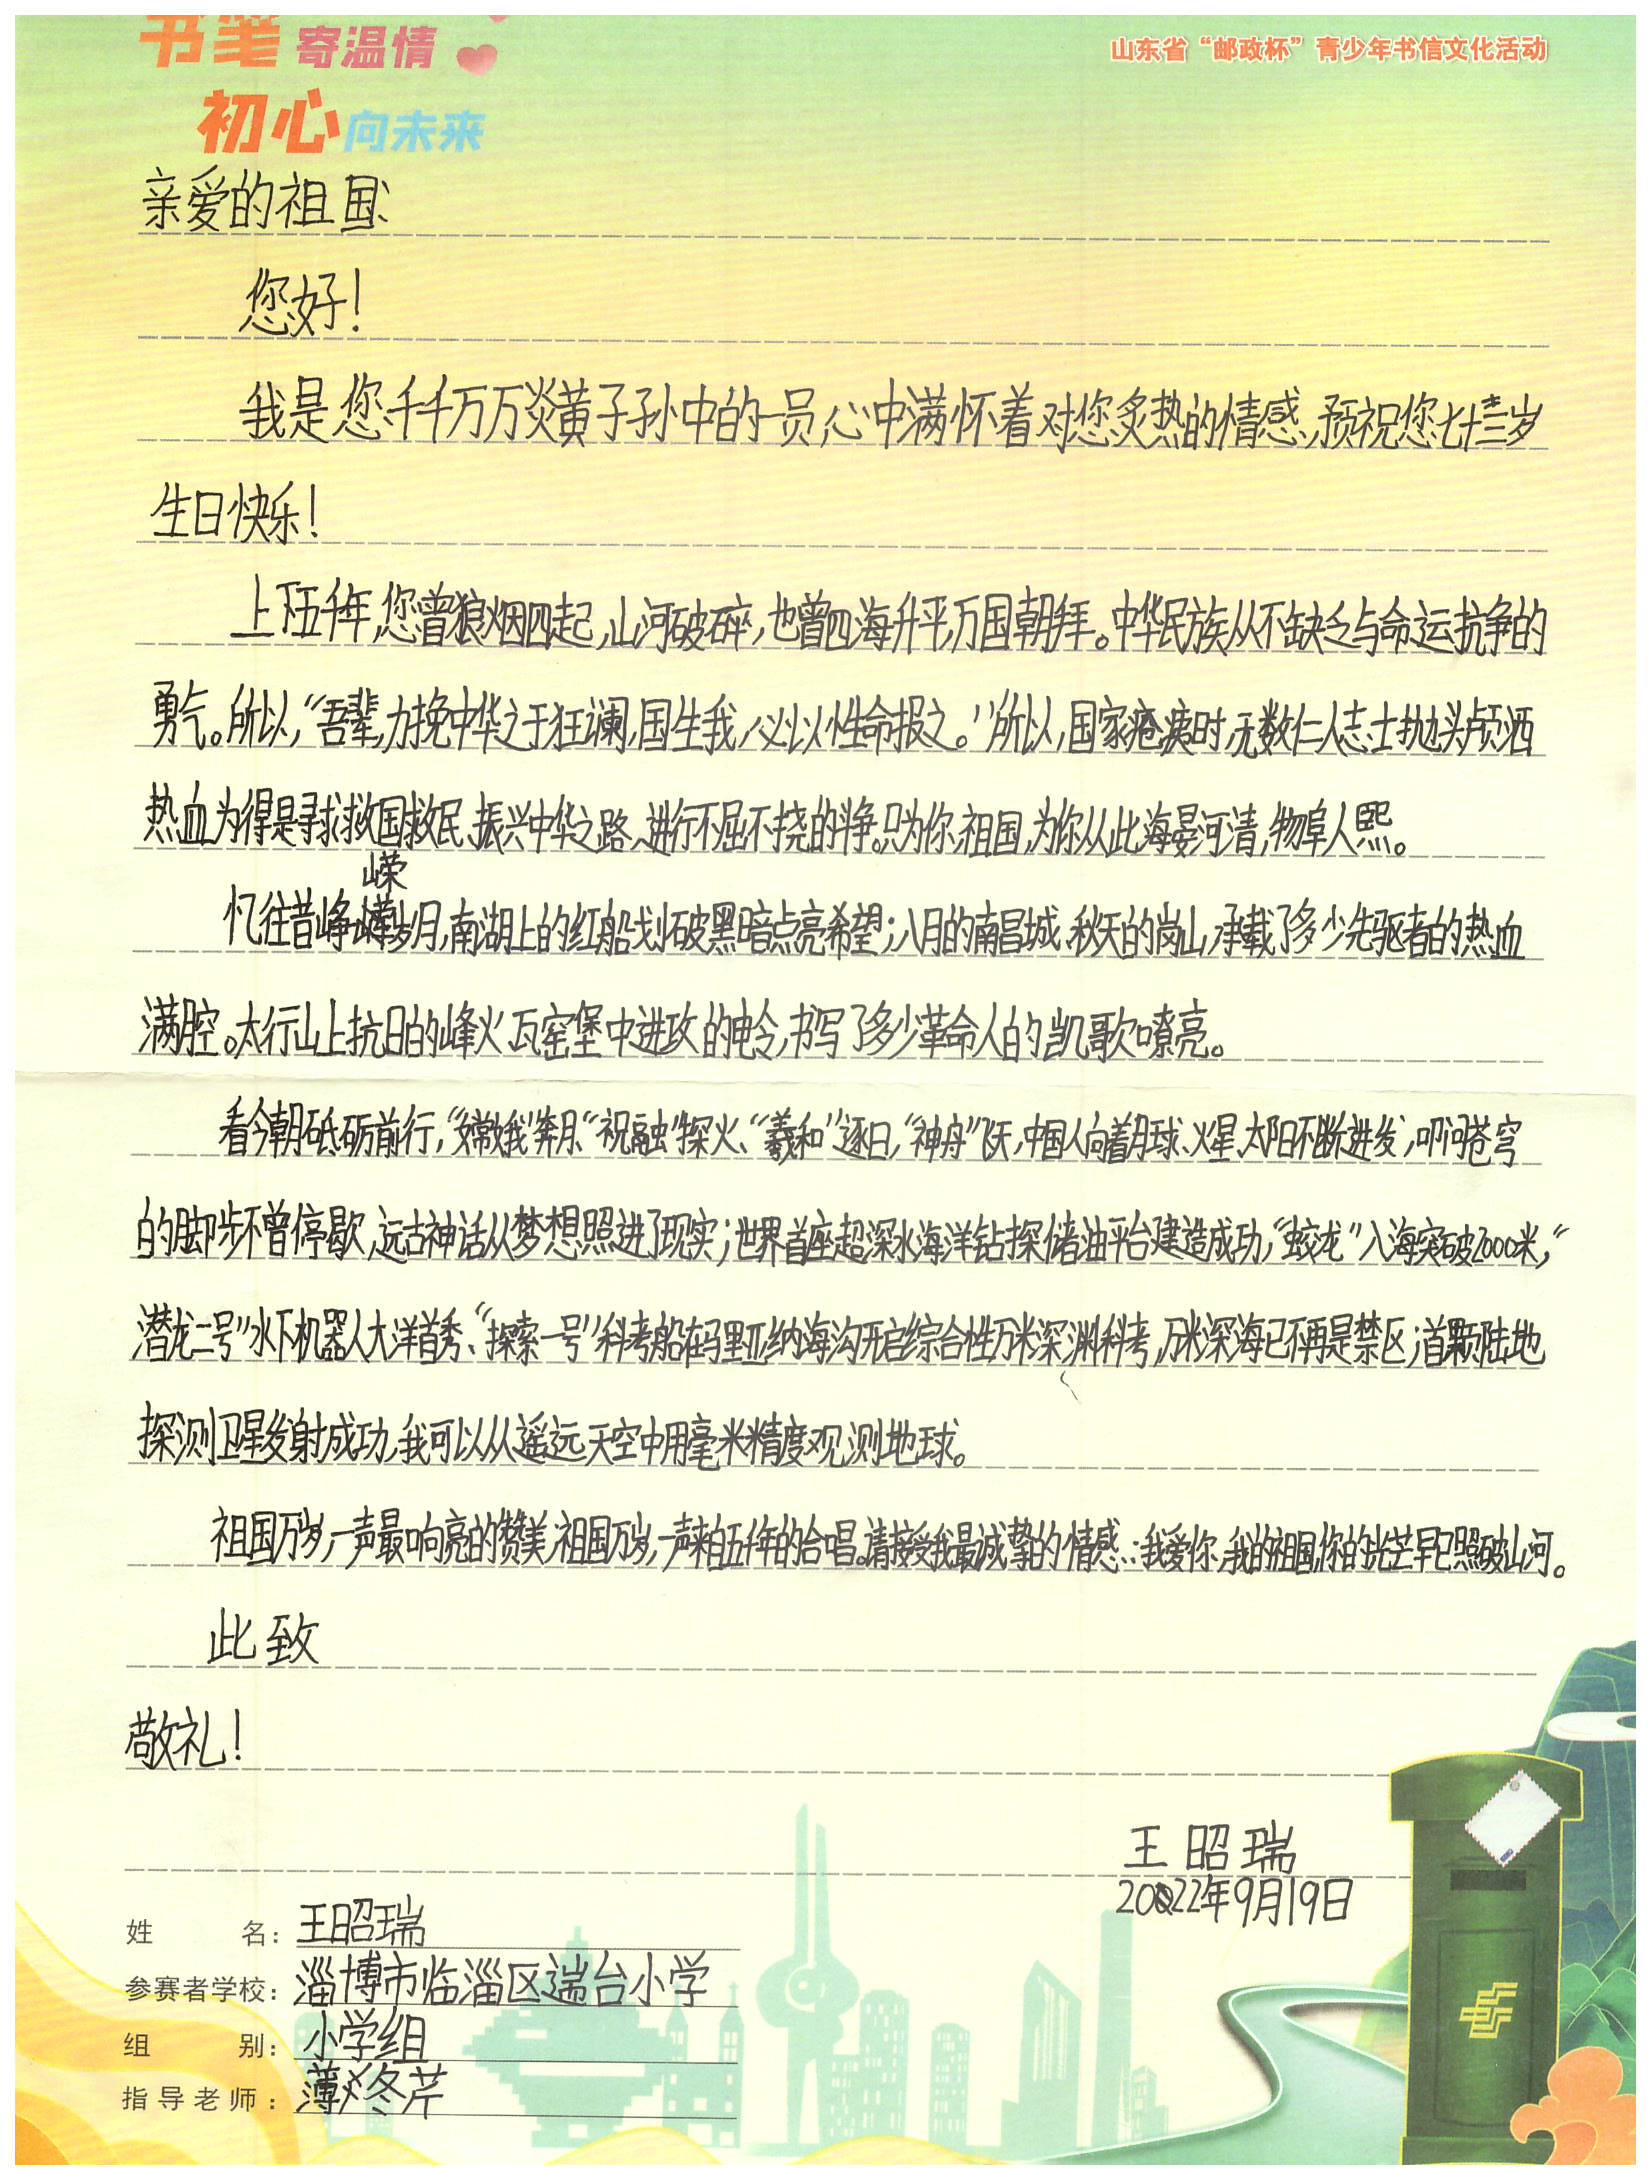 书笔寄温情
山东省“邮政杯”青少年书信文化活动
初心向未来
亲爱的祖国:
您好!
我是您千千万万炎黄子孙中的一员,心中满怀着对您炙热的情感,预祝您七十三岁
生日快乐!
上下五千年,您曾狼烟四起,山河破碎,也曾四海升平,万国朝拜。中华民族从不缺乏与命运抗争的
勇气。所以,“吾辈,力挽中华之于狂澜,国生我,必以性命报之。”所以,国家疮痍时,无数仁人志士抛头颅洒
热血为得是寻求救国救民、振兴中华之路、进行不屈不挠的斗争。只为你,祖国,为你从此海晏河清,物阜人熙。
忆往昔峥嵘岁月,南湖上的红船划破黑暗点亮希望;八月的南昌城、秋天的岗山,承载了多少先驱者的热血
满腔。太行山上抗日的烽火、瓦窑堡中进攻的电令,书写了多少革命人的凯歌嘹亮。
看今朝砥砺前行,“嫦娥”奔月、“祝融”探火、“羲和”逐日,“神舟”飞天,中国人向着月球、火星、太阳不断进发,叩问苍穹
的脚步不曾停歇,远古神话从梦想照进了现实;世界首座超深水海洋钻探储油平台建造成功,“蛟龙”入海突破7000米,“
潜龙二号”水下机器人大洋首秀、“探索一号”科考船在马里亚纳海沟开启综合性万米深渊科考,万米深海已不再是禁区;首颗陆地
探测卫星发射成功,我可以从遥远天空中用毫米精度观测地球。
祖国万岁,一声最响亮的赞美;祖国万岁,一声来自五千年的合唱。请接受我最诚挚的情感…我爱你,我的祖国,你的光芒早已照破山河。
此致
敬礼!
王昭瑞
2022年9月19日
姓名:王昭瑞
参赛者学校:淄博市临淄区遄台小学
组别:小学组
指导老师:薄冬芹